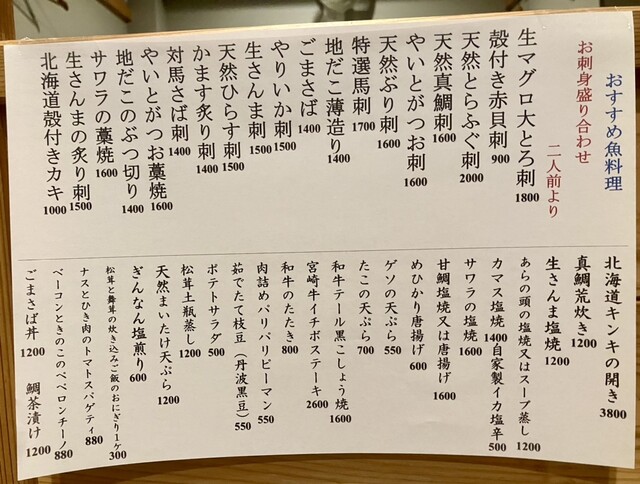 おすすめ魚料理
お刺身盛り合わせ
二人前より
生マグロ大とろ刺 1800
殻付き赤貝刺 900
天然とらふぐ刺 2000
天然真鯛刺 1600
やいとがつお刺 1600
天然ぶり刺 1600
特選馬刺 1700
地だこ薄造り 1400
ごまさば 1400
やりいか刺 1500
生さんま刺 1500
天然ひらす刺 1500
かます炙り刺 1400
対馬さば刺 1400
やいとがつお藁焼 1600
地だこのぶつ切り 1400
サワラの藁焼 1600
生さんまの炙り刺 1500
北海道殻付きカキ 1000
北海道キンキの開き 3800
真鯛荒炊き 1200
生さんま塩焼 1200
あらの頭の塩焼又はスープ蒸し 1200
カマス塩焼 1400 自家製イカ塩辛 500
サワラの塩焼 1600
甘鯛塩焼又は唐揚げ 1600
めひかり唐揚げ 600
ゲソの天ぷら 550
たこの天ぷら 700
和牛テール黒こしょう焼 1600
宮崎牛イチボステーキ 2600
和牛のたたき 800
肉詰めパリパリピーマン 550
茹でたて枝豆（丹波黒豆） 550
ポテトサラダ 500
松茸土瓶蒸し 1200
天然まいたけ天ぷら 1200
ぎんなん塩煎り 600
松茸と舞茸の炊き込みご飯のおにぎり1ケ 300
ナスとひき肉のトマトスパゲティ 880
ベーコンときのこのペペロンチーノ 880
ごまさば丼 1200 鯛茶漬け 1200